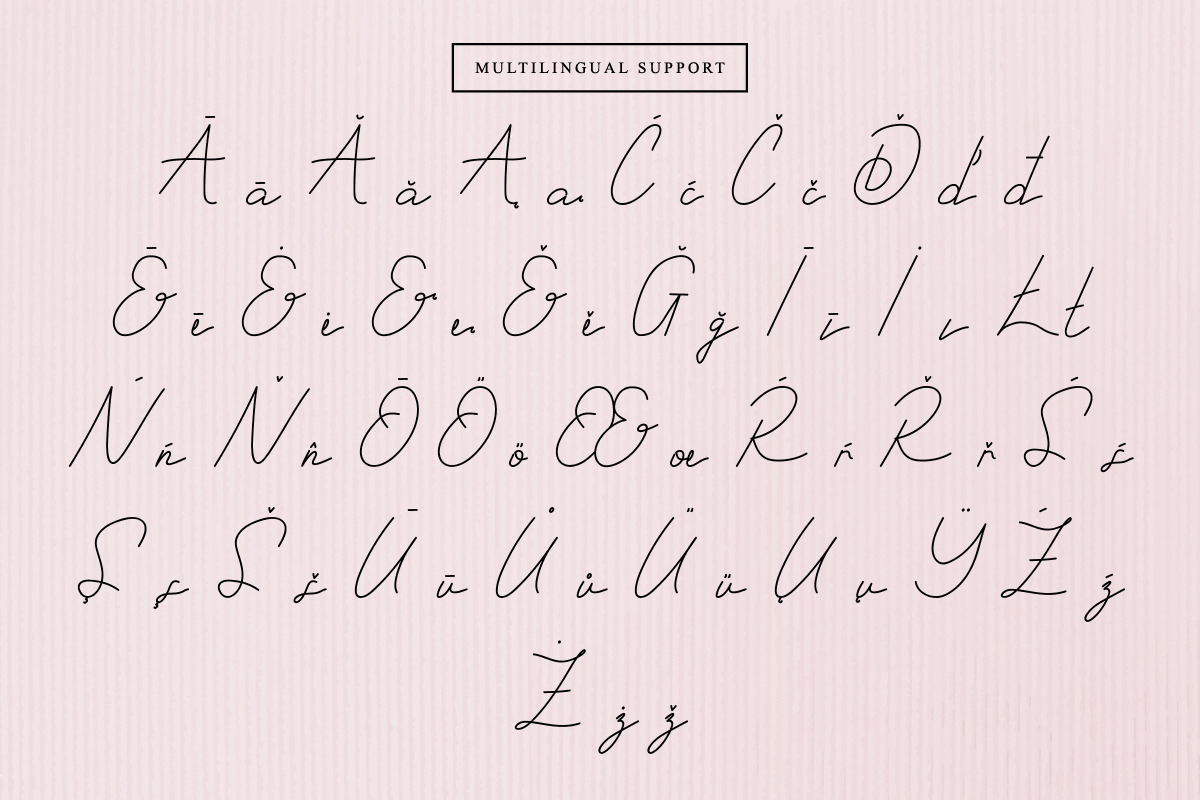 MULTILINGUAL SUPPORT
Ā ā Ă ă Ą ą Ć ć Č č Ď ď đ
Ē ē Ė ė Ę ę Ě ě Ğ ğ Ī ī İ ı Ł ł
Ń ń Ň n̂ Ō Ö ö Œ œ Ŕ ŕ Ř ř Ś ś
Ş ş Š š Ū ū Ů ů Ü ü Ų ų Ÿ Ź ź
Ż ż ž